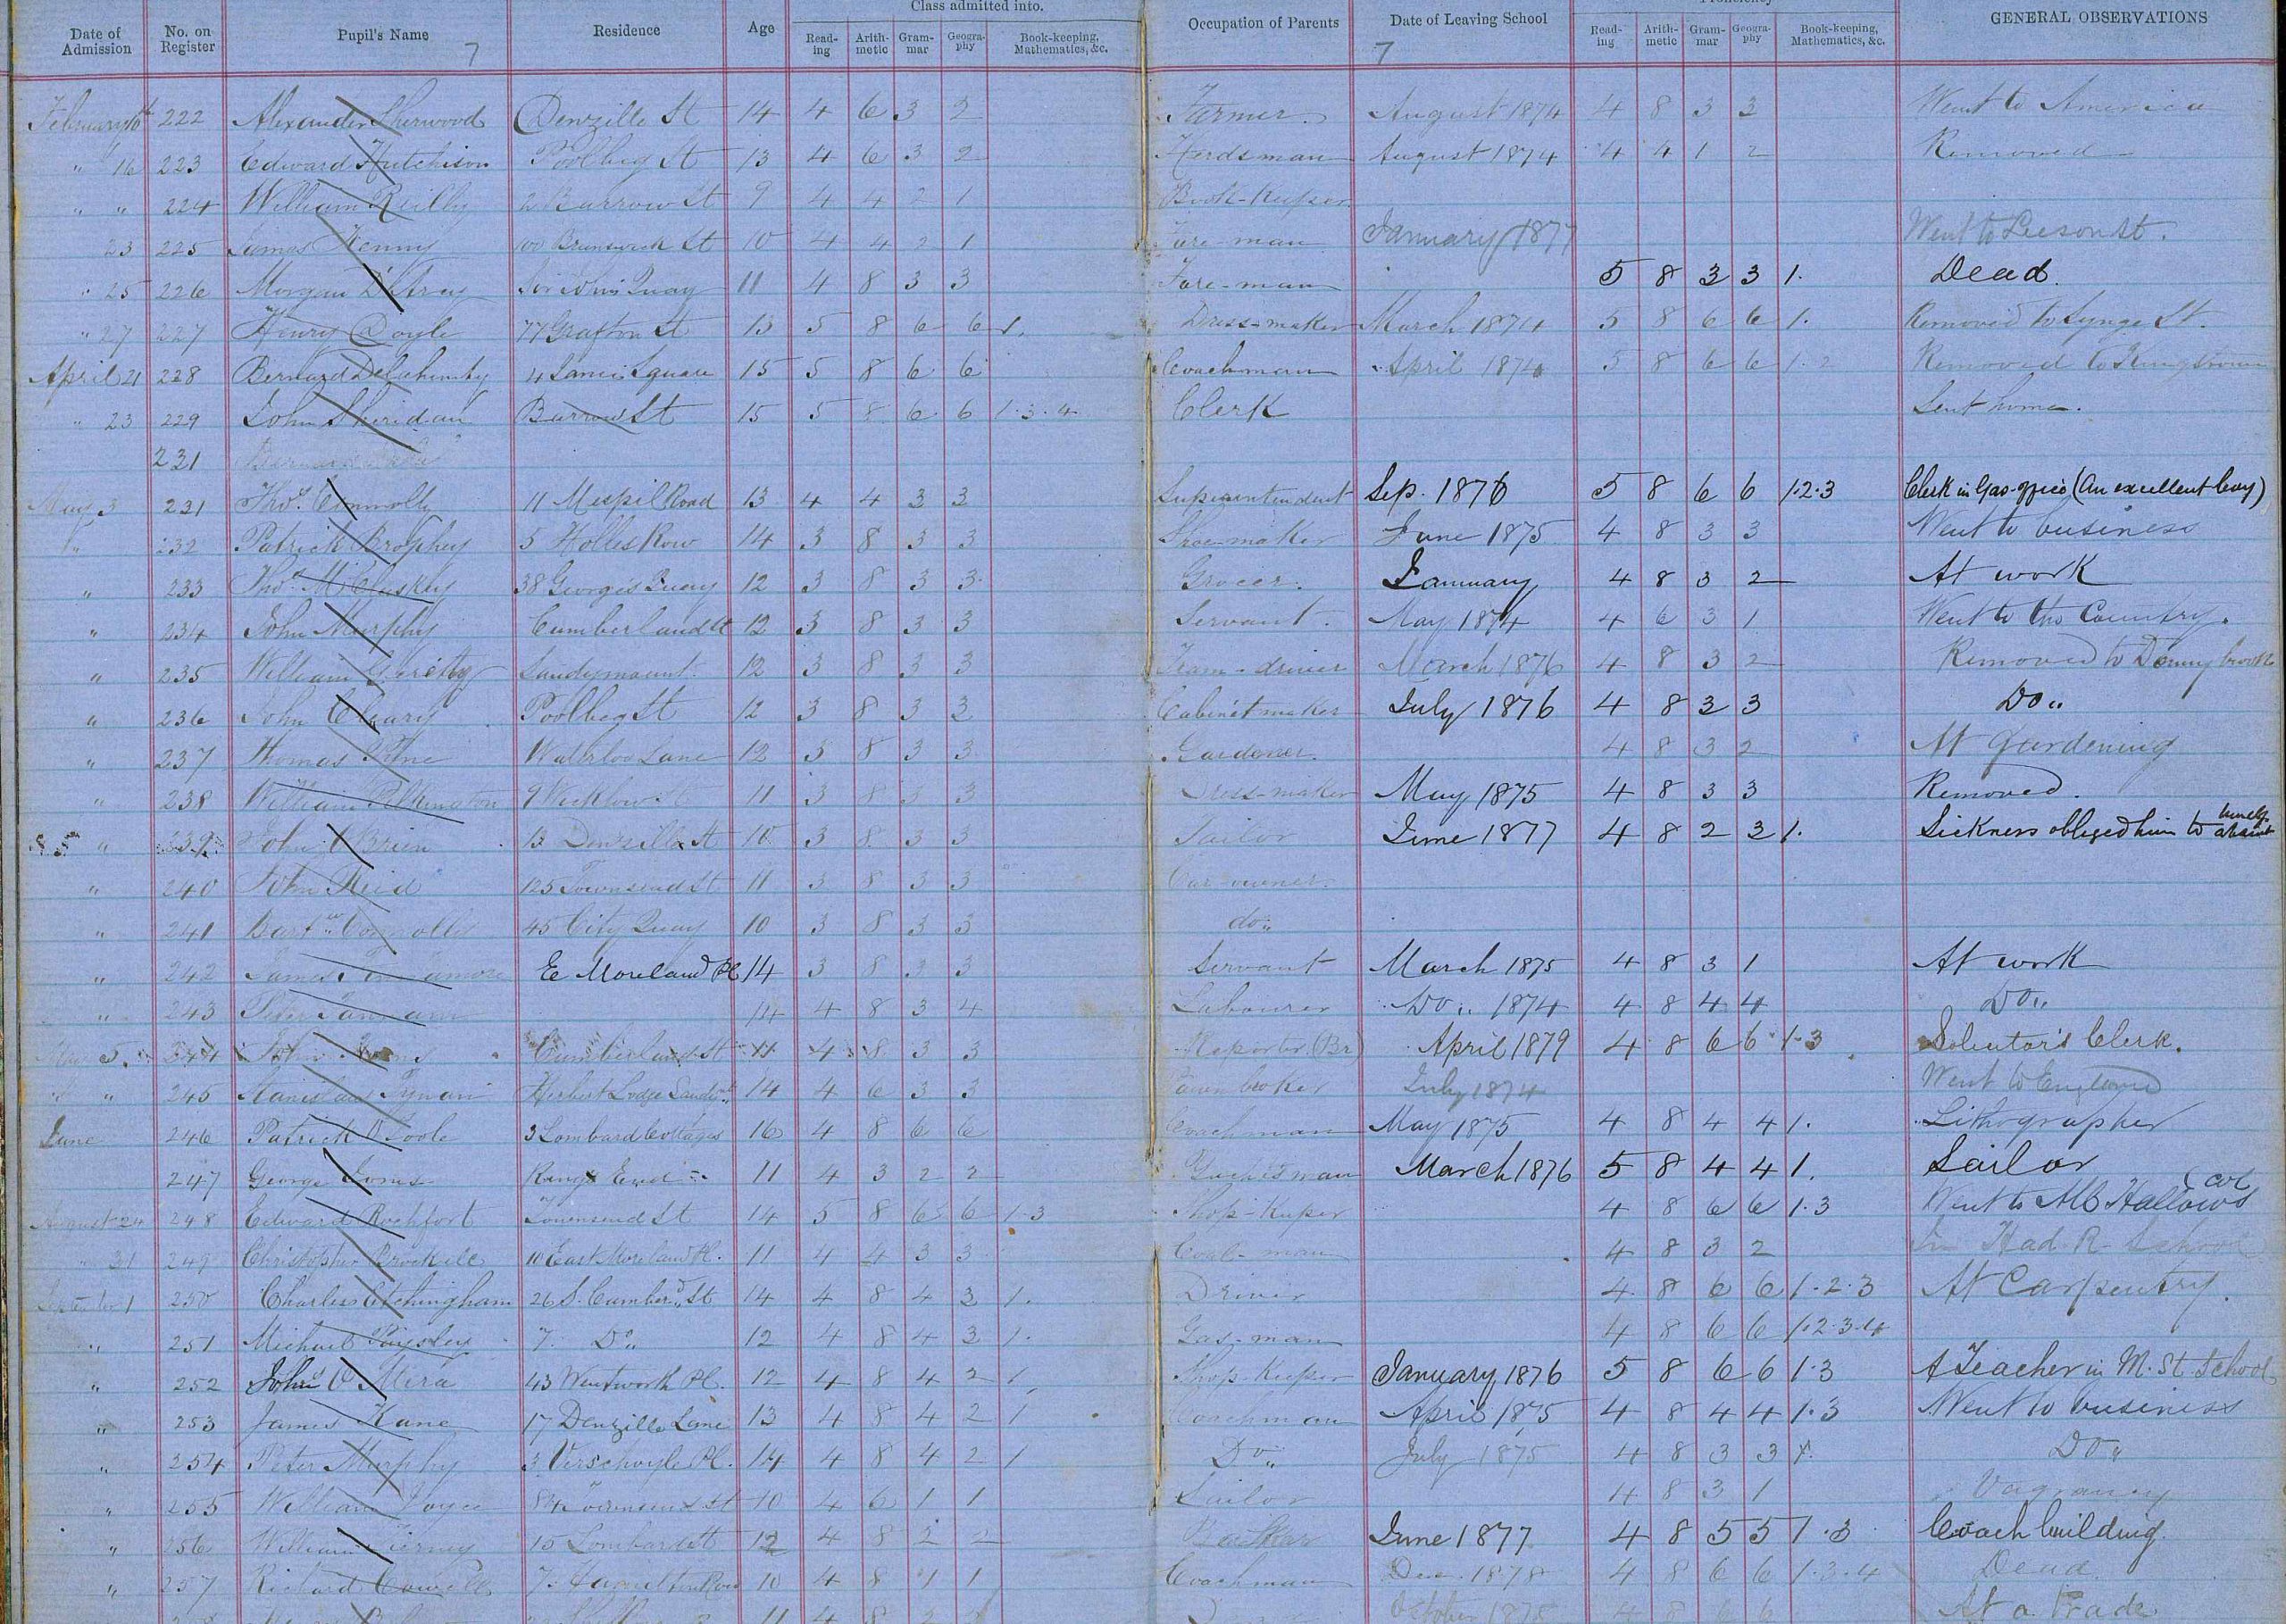 Class admitted into. Proficiency
Date of Admission No. on Register Pupil's Name Residence Age Read-ing Arith-metic Gram-mar Geogra-phy Book-keeping, Mathematics, &c. Occupation of Parents Date of Leaving School Read-ing Arith-metic Gram-mar Geogra-phy Book-keeping, Mathematics, &c. GENERAL OBSERVATIONS
7 7
February 16th 222 Alexander Sherwood Denzille St 14 4 6 3 2 Farmer August 1874 4 8 3 3 Went to America
" 16 223 Edward Hutchison Poolbeg St 13 4 6 3 2 Herdsman August 1874 4 4 1 2 Removed
" " 224 William Reilly 2 Barrow St 9 4 4 2 1 Book-Keeper
23 225 James Kenny 100 Brunswick St 10 4 4 2 1 Fore-man January 1877 Went to Leeson St.
" 25 226 Morgan Sir John's Quay 11 4 8 3 3 Fore-man 5 8 3 3 1. Dead.
" 27 227 Henry Doyle 77 Grafton St 13 5 8 6 6 1. Dress-maker March 1874 5 8 6 6 1. Removed to Synge St.
April 21 228 Bernard Delahunty 4 Square 15 5 8 6 6 Coachman April 1874 5 8 6 6 1.2 Removed to Kingstown
" 23 229 John Sheridan Barrow St 15 5 8 6 6 1.3.4 Clerk Sent home.
231 Bernard
May 3 231 Thos. Connolly 11 Mespil Road 13 4 4 3 3 Superintendent Sep. 1876 5 8 6 6 1.2.3 Clerk in Gas-office (An excellent boy)
" 232 Patrick Brophy 5 Holles Row 14 3 8 3 3 Shoe-maker June 1875 4 8 3 3 Went to business
" 233 Thos. McCluskey 38 George's Quay 12 3 8 3 3 Grocer. January 4 8 3 2 At work
" 234 John Murphy Cumberland St 12 3 8 3 3 Servant. May 1874 4 6 3 1 Went to the Country.
" 235 William Geraghty Sandymount. 12 3 8 3 3 Tram-driver March 1876 4 8 3 2 Removed to Donnybrook
" 236 John Cleary Poolbeg St 12 3 8 3 3 Cabinet maker July 1876 4 8 3 3 Do "
" 237 Thomas Waterloo Lane 12 3 8 3 3 Gardener 4 8 3 2 At Gardening
" 238 William Pilkington 9 Wicklow St 11 3 8 3 3 Dress-maker May 1875 4 8 3 3 Removed.
" 239 John O'Brien 13 Denzille St 10 3 8 3 3 Tailor June 1877 4 8 2 3 1. Sickness obliged him to absent himself
" 240 John Reid 125 Townsend St 11 3 8 3 3 Car-owner.
" 241 Bartw. Connolly 45 City Quay 10 3 8 3 3 do "
" 242 James E Moreland Pl 14 3 8 3 3 Servant March 1875 4 8 3 1 At work
" 243 Peter Tannam 14 4 8 3 4 Labourer Do " 1874 4 8 4 4 Do "
May 5. 244 John Cumberland St 11 4 8 3 3 Reporter (Br) April 1879 4 8 6 6 1.3 Solicitor's Clerk.
" " 245 Stanislaus Tynan Herbert Lodge Sandymt. 14 4 6 3 3 Pawn broker July 1874 Went to England
June 246 Patrick O'Toole 3 Lombard Cottages 16 4 8 6 6 Coachman May 1875 4 8 4 4 1. Lithographer
247 George Rings End 11 4 3 2 2 March 1876 5 8 4 4 1. Sailor
August 24 248 Edward Rochfort Townsend St 14 5 8 6 6 1.3 Shop-Keeper 4 8 6 6 1.3 Went to All Hallows Col
" 31 249 Christopher 10 East Moreland Pl. 11 4 4 3 3 Coal-man 4 8 3 2 In Had. R. School
September 1 250 Charles Etchingham 26 S. Cumberd. St 14 4 8 4 3 1. Driver 4 8 6 6 1.2.3 At Carpentry.
" 251 Michael Paisley 7 Do " 12 4 8 4 3 1. Gas-man 4 8 6 6 1.2.3.4
" 252 John O'Mera 43 Wentworth Pl. 12 4 8 4 2 1 Shop-Keeper January 1876 5 8 6 6 1.3 A Teacher in M. St School
" 253 James Kane 17 Denzille Lane 13 4 8 4 2 1 Coachman April 1875 4 8 4 4 1.3 Went to business
" 254 Peter Murphy 3 Verschoyle Pl. 14 4 8 4 2 1 Do " July 1875 4 8 3 3 1. Do "
" 255 William Joyce 84 Townsend St 10 4 6 1 1 Sailor 4 8 3 1 Vagrancy
" 256 William Tierney 15 Lombard St 12 4 8 2 2 June 1877 4 8 5 5 1.3 Coach building.
" 257 Richard 7 Hamilton Row 10 4 8 1 1 Coachman Dec. 1878 4 8 6 6 1.3.4 Dead.
11 4 8 2 October 1875 4 8 6 6 At a Trade